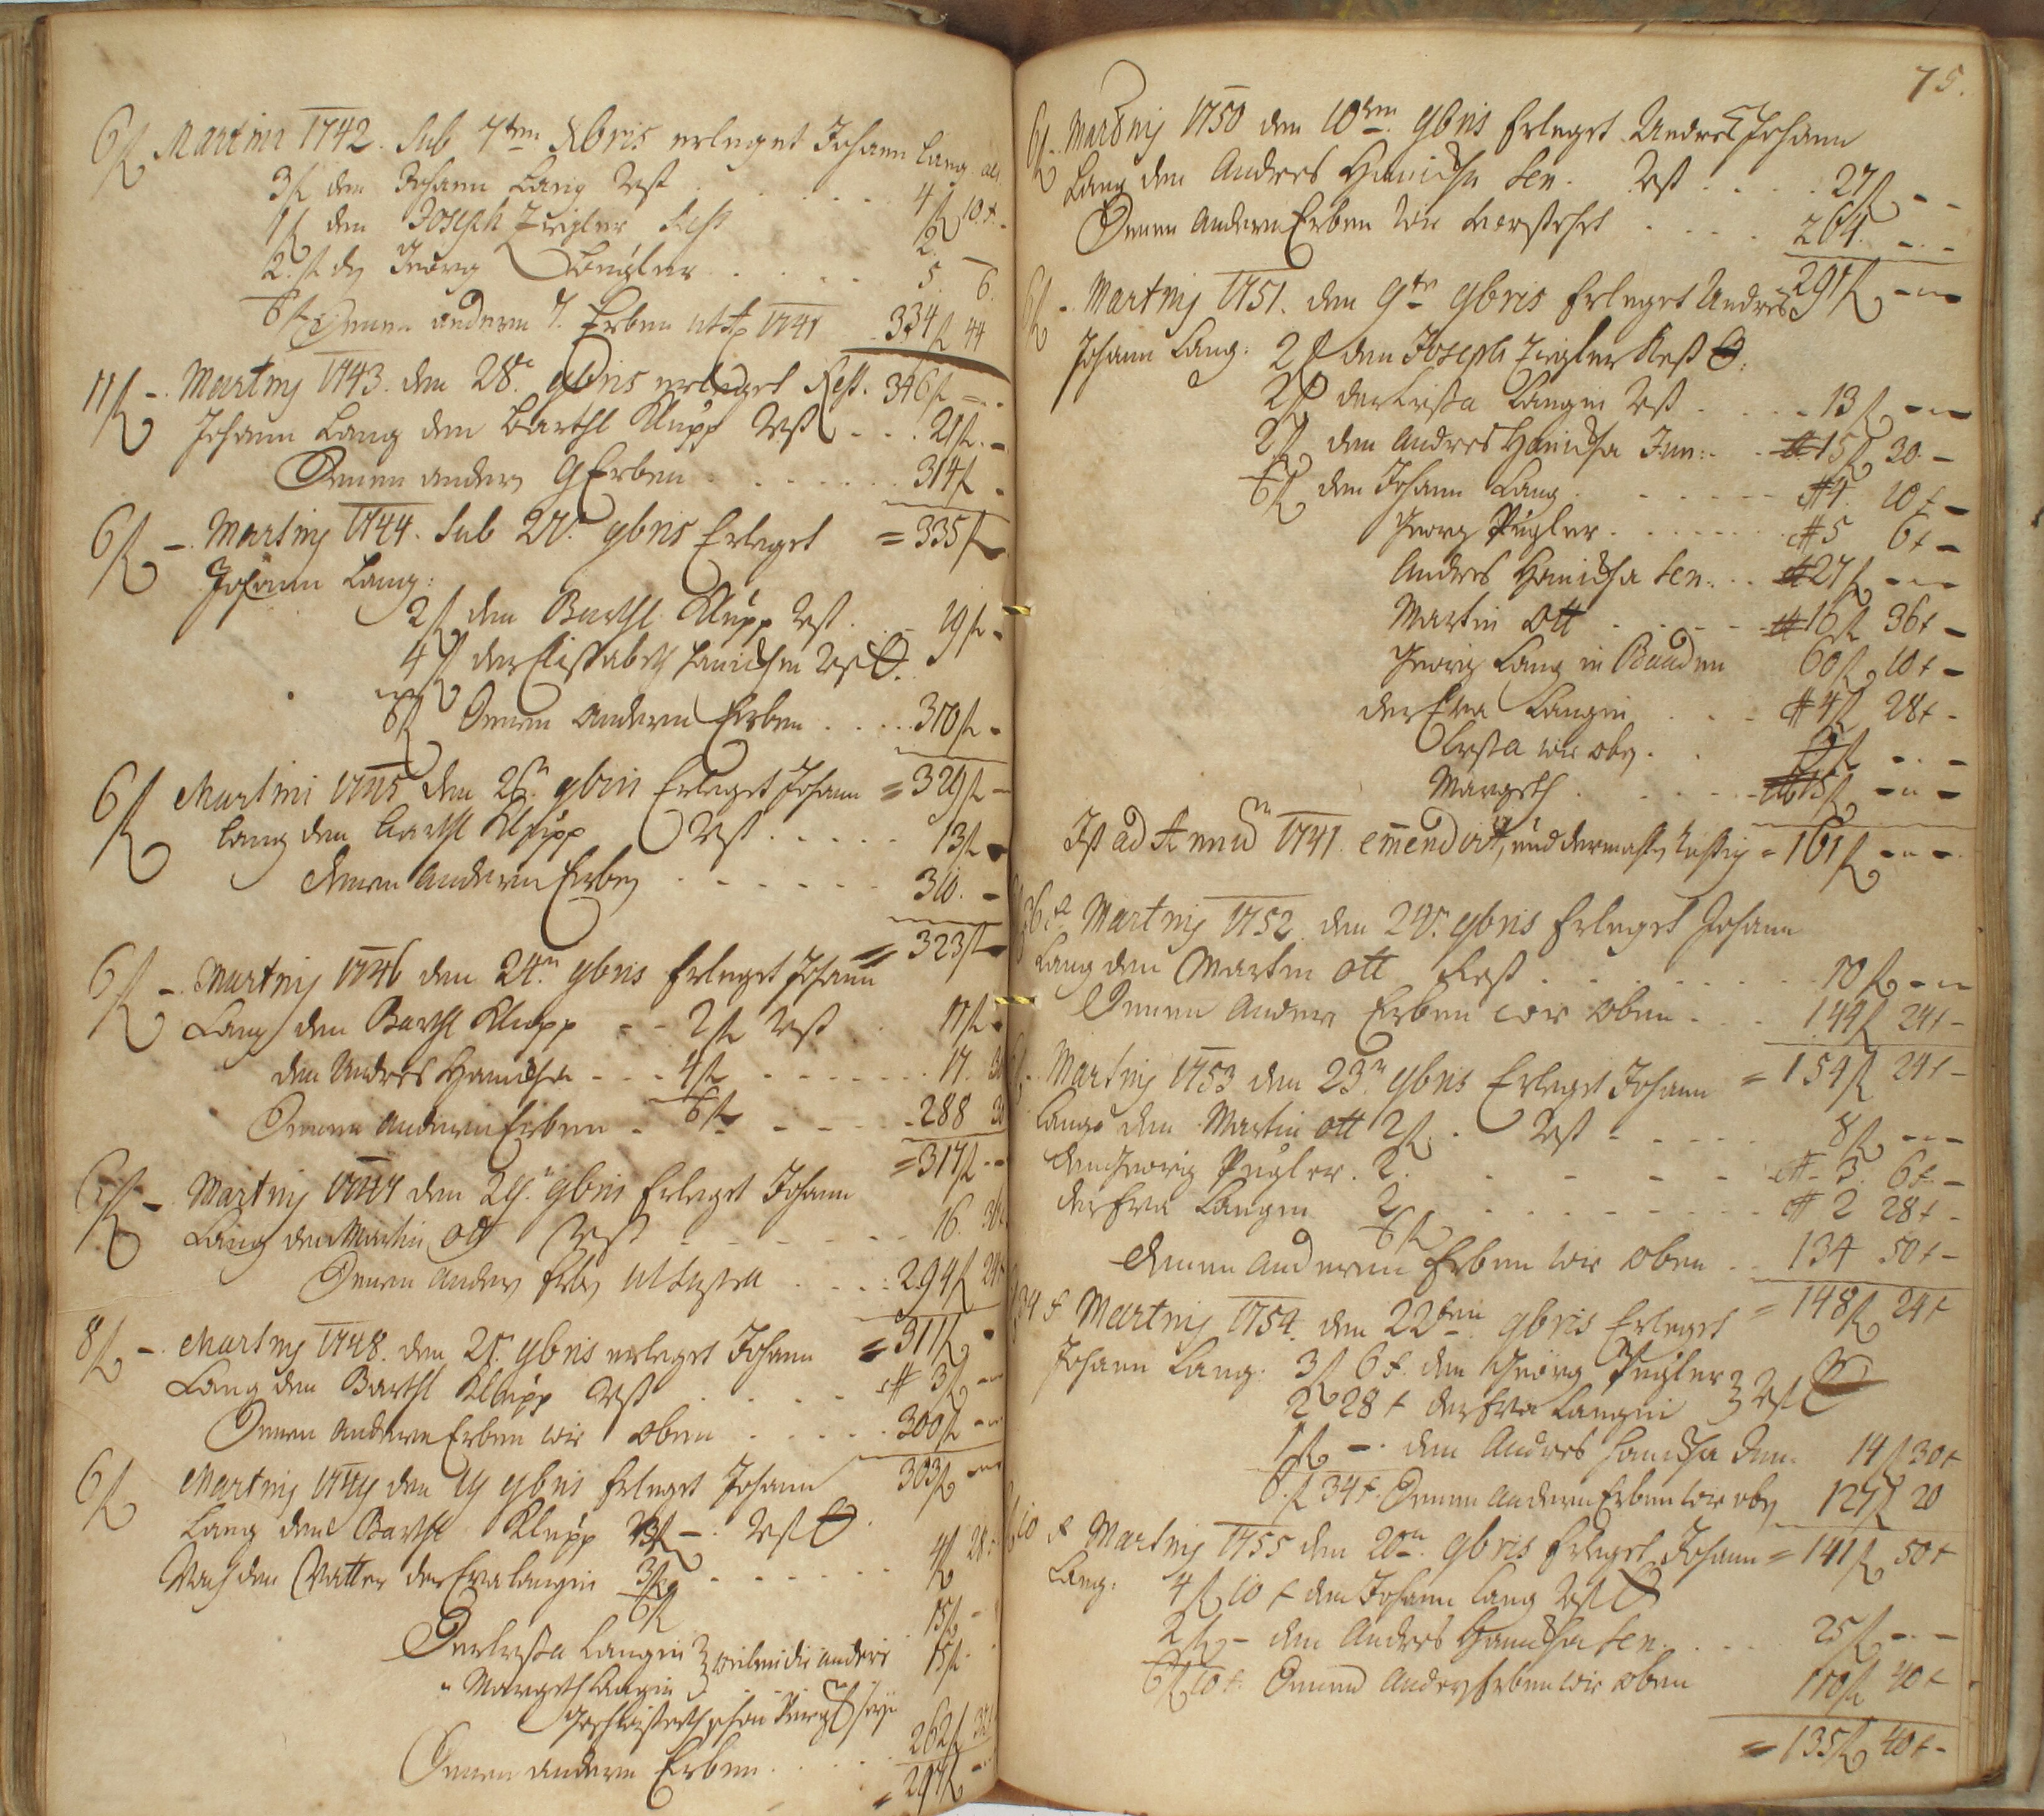 6 fl Martini 1742. Sub 7ten Xbris erleget Johann Lang. als
3 fl dem Johann Lang Rest . . . 4 fl 10 x
1 fl dem Joseph Ziegler Rest 2.
2. fl dem Georg . . . 5. 6.
6 fl Denen andern 7. Erben ut Ao 1741 334 fl 44
11 fl – Martiny 1743. den 28. 9bris erleget Rest. 346 fl
Johann Lang dem Barthl Klupp Rest - . . 21 fl. –
Denen andern 9 Erben . . . 314 fl
6 fl – Martiny 1744. Sub 27. 9bris Erleget = 335 fl
Johann Lang:
2 fl dem Barthl Klupp Rest . . 19 fl -
4 fl der Elisabeth Haniſchin Rest 0.
6 fl Denen andern Erben . . . 310 fl -
6 fl Martini 1745 den 26. 9bris Erleget Johann = 329 fl –
Lang dem Barthl Klupp Rest . . . 13 fl
denen andern Erben . . . 310. –
= 323 fl
6 fl – Martiny 1746 den 24. 9bris Erleget Johann
Lang dem Barthl Klupp - - 2 fl Rest 11 fl -
dem Andres Haniſcha - - - 4 fl . . . 17. 30
Denen andern Erben - 6 fl - - - 288 30
= 317 fl - -
6 fl – Martiny 1747 den 29. 9bris Erleget Johann
Lang dem Martin Ott Rest - - - 16. 36
Denen andern Erben ut supra . . . 294 fl 24
8 fl – Martiny 1748. den 25. 9bris erleget Johann = 311 fl
Lang dem Barthl Klupp Rest . . . # 3 fl
Denen andern Erben wie oben . . . 300 fl
6 fl Martiny 1749 den 19 9bris Erleget Johann 303 fl
Lang dem Barthl Klupp 3 fl –. Rest 0.
Nach dem Vatter der Eva Langin 3 fl . . . 4 fl 28
6 fl
Der Lista Langin } weilen die andere 15 fl -
" Margeth Langin } 15 fl
Denen andern Erben . . . 262 fl 32
= 297 fl
75.
6 fl - Martiny 1750 den 10ten 9bris Erleget Andres Johann
Lang dem Andres Haniſcha Sen. Rest . . . 27 fl - -
Denen andern Erben wie vorstehet . . . 264. - . -
6 fl - Martiny 1751. den 9te 9bris Erleget Andres 291 fl - - -
Johann Lang: 2 fl dem Joseph Ziegler Rest 0.
2 fl der Lista Langin Rest . . . 13 fl - - -
2 fl dem Andres Haniſcha Jun: . . # 15 fl 30 -
6 fl dem Johann Lang . . . # 4. 10 x -
Georg Pügler . . . # 5 6 x -
Andres Haniſcha Sen. . . # 27 fl - - -
Martin Ott . . . # 16 fl 36 x -
Georg Lang in Bauden 60 fl 10 x -
der Eva Langin . . # 4 fl 28 x -
Lista wie oben . .
Margeth . . . # 15 fl - - -
Ist ad Annum 1741. emendirt, und dermahlen richtig = 161 fl - - -
6 fl 36 x Martiny 1752. den 24. 9bris Erleget Johann
Lang dem Martin Ott Rest . . . 10 fl - - -
Denen andern Erben wie oben . . . 144 fl 24 x -
Martiny 1753 den 23. 9bris Erleget Johann = 154 fl 24 x -
Lang dem Martin Ott 2 fl. . Rest . . . 8 fl - - -
dem Georg Pügler . 2. - - - # - 3. 6 x -
der Eva Langin 2 . . . # 2 28 x -
6 fl
denen anderen Erben wie oben . . 134 50 x -
34 x Martiny 1754. den 22ten 9bris Erleget = 148 fl 24 x
Johann Lang: 3 fl 6 x. dem Georg Pügler } Rest 0
2 28 x der Eva Langin }
1 fl -. dem Andres Haniſcha Jun. 14 fl 30 x
6. fl 34 x. Denen andern Erben wie oben 127 fl 20
6 fl 10 x Martiny 1755 den 20ten 9bris Erleget Johann = 141 fl 50 x
Lang: 4 fl 10 x dem Johann Lang Rest 0
2 fl - dem Andres Haniſcha Sen. . . 25 fl - . -
6 fl 10 x. Denen andern Erben wie oben 110 fl 40 x
= 135 fl 40 x -